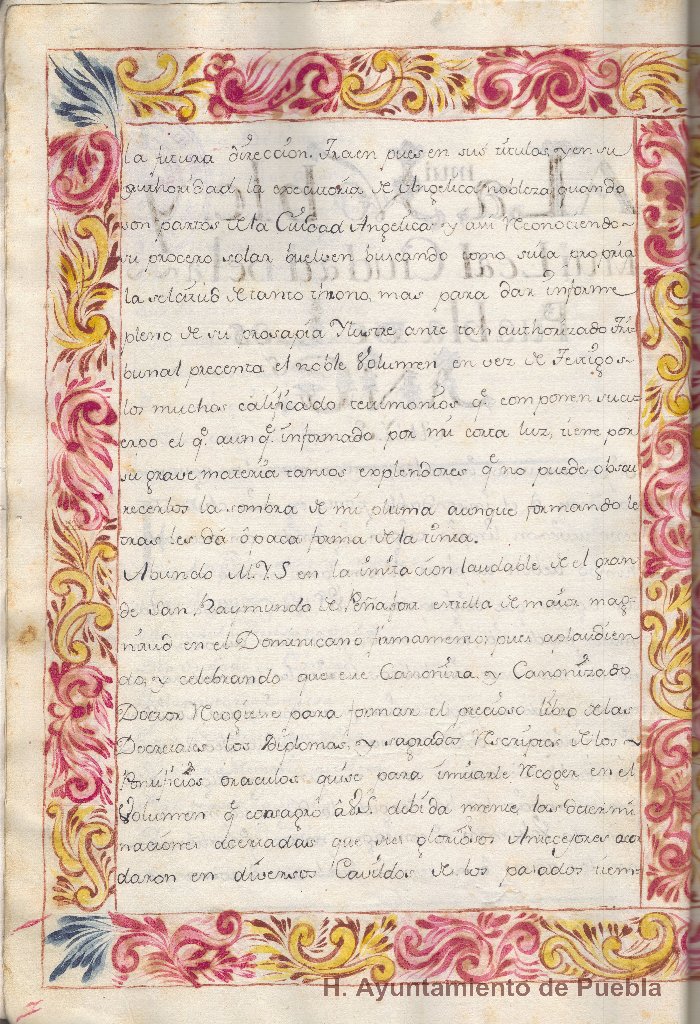 la futura direccion. Traen pues en sus titulos, y en su
authoridad, la executoria de Angelica nobleza quando
son partos de la Ciudad Angelica. y assi Reconociendo
su procero solar buelven buscando como suia propria
la solicitud de tanto throno, mas para dar informe
pleno de su prosapia Ilustre ante tan authorizado Tri
bunal precenta el noble Volumen en vez de Testigos
los muchos calificado testimonios q.e componen su cu
erpo el q.e aunq.e informado por mi corta luz, tiene por
su grave materia tantos explendores q.e no puede obscu
recerlos la sombra de mi pluma aunque formando le
tras les dá ópaca forma de la tinta.
Abundo M.V.S en la imitacion laudable de el gran
de San Raymundo de Peñafort estrella de maior mag
nitud en el Dominicano firmamento; pues aplaudien
do, y celebrando que este Canonista, y Canonizado
Doctor Recogiese para formar el precioso libro de las
Decretales los Diplomas, y sagrados Rescriptos de los
Pontificios óraculos quise para imitarle Recoger en el
Volumen q.e consagró á V.S. debida mente las determi
naciones acertadas que sus gloriosos Antecesores acor
daron en diversos Cavildos de los pasados tiem
H. Ayuntamiento de Puebla